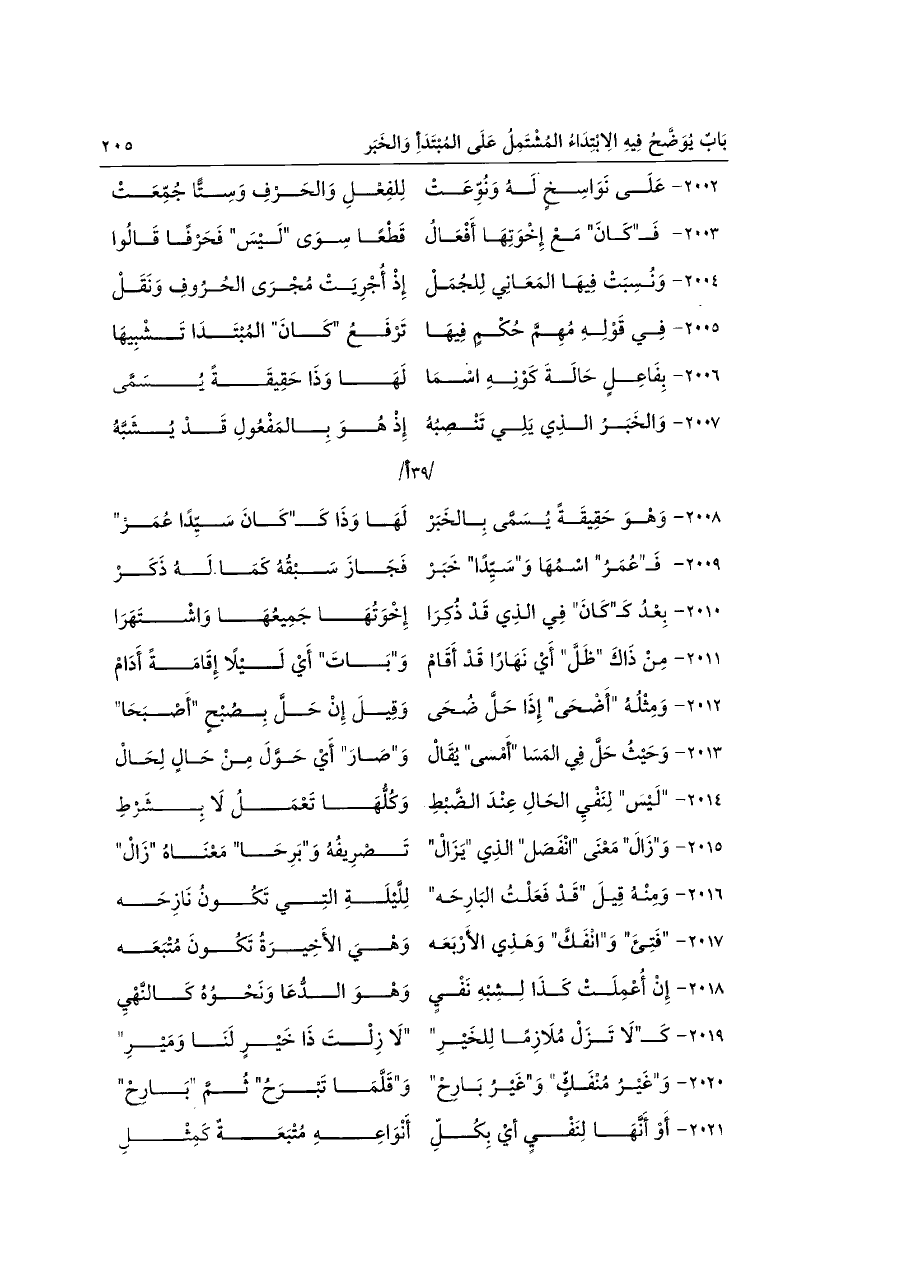 بَابٌ يُوَضَّحُ فِيهِ الِابْتِدَاءُ المُشْتَمِلُ عَلَى المُبْتَدَأِ وَالخَبَر ٢٠٥
٢٠٠٢- عَلَى نَوَاسِخٍ لَهُ وَنُوِّعَتْ لِلفِعْلِ وَالحَرْفِ وَسِتًّا جُمِّعَتْ
٢٠٠٣- فَـ"كَانَ" مَعْ إِخْوَتِهَا أَفْعَالُ قَطْعًا سِوَى "لَيْسَ" فَحَرْفًا قَالُوا
٢٠٠٤- وَنُسِبَتْ فِيهَا المَعَانِي لِلجُمَلْ إِذْ أُجْرِيَتْ مُجْرَى الحُرُوفِ وَنَقَلْ
٢٠٠٥- فِي قَوْلِهِ مُهِمَّ حُكْمٍ فِيهَا تَرْفَعُ "كَانَ" المُبْتَدَا تَشْبِيهَا
٢٠٠٦- بِفَاعِلٍ حَالَةَ كَوْنِهِ اسْمَا لَهَا وَذَا حَقِيقَةً يُسَمَّى
٢٠٠٧- وَالخَبَرُ الذِي يَلِي تَنْصِبُهُ إِذْ هُوَ بِالمَفْعُولِ قَدْ يُشَبَّهُ
/١٣٩أ/
٢٠٠٨- وَهْوَ حَقِيقَةً يُسَمَّى بِالخَبَرْ لَهَا وَذَا كَـ"كَانَ سَيِّدًا عُمَرْ"
٢٠٠٩- فَـ"عُمَرُ" اسْمُهَا وَ"سَيِّدًا" خَبَرْ فَجَازَ سَبْقُهُ كَمَا لَهُ ذَكَرْ
٢٠١٠- بِعْدُ كَـ"كَانَ" فِي الذِي قَدْ ذُكِرَا إِخْوَتُهَا جَمِيعُهَا وَاشْتَهَرَا
٢٠١١- مِنْ ذَاكَ "ظَلَّ" أَيْ نَهَارًا قَدْ أَقَامْ وَ"بَاتَ" أَيْ لَيْلًا إِقَامَةً أَدَامْ
٢٠١٢- وَمِثْلُهُ "أَضْحَى" إِذَا حَلَّ ضُحَى وَقِيلَ إِنْ حَلَّ بِصُبْحٍ "أَصْبَحَا"
٢٠١٣- وَحَيْثُ حَلَّ فِي المَسَا "أَمْسى" يُقَالْ وَ"صَارَ" أَيْ حَوَّلَ مِنْ حَالٍ لِحَالْ
٢٠١٤- "لَيْسَ" لِنَفْيِ الحَالِ عِنْدَ الضَّبْطِ وَكُلُّهَا تَعْمَلُ لَا بِشَرْطِ
٢٠١٥- وَ"زَالَ" مَعْنَى "انْفَصَل" الذِي "يَزَالْ" تَصْرِيفُهُ وَ"بَرِحَا" مَعْنَاهُ "زَالْ"
٢٠١٦- وَمِنْهُ قِيلَ "قَدْ فَعَلْتُ البَارِحَه" لِلَّيْلَةِ التِي تَكُونُ نَازِحَه
٢٠١٧- "فَتِئَ" وَ"انْفَكَّ" وَهَذِي الأَرْبَعَه وَهْيَ الأَخِيرَةُ تَكُونَ مُتْبَعَه
٢٠١٨- إِنْ أُعْمِلَتْ كَذَا لِشِبْهِ نَفْيِ وَهْوَ الدُّعَا وَنَحْوُهُ كَالنَّهْيِ
٢٠١٩- كَـ"لَا تَزَلْ مُلَازِمًا لِلخَيْرِ" "لَا زِلْتَ ذَا خَيْرٍ لَنَا وَمَيْرِ"
٢٠٢٠- وَ"غَيْرُ مُنْفَكٍّ" وَ"غَيْرُ بَارِحْ" وَ"قَلَّمَا تَبْرَحُ" ثُمَّ "بَارِحْ"
٢٠٢١- أَوْ أَنَّهَا لِنَفْيٍ أَيْ بِكُلِّ أَنْوَاعِهِ مُتْبَعَةٌ كَمِثْلِ